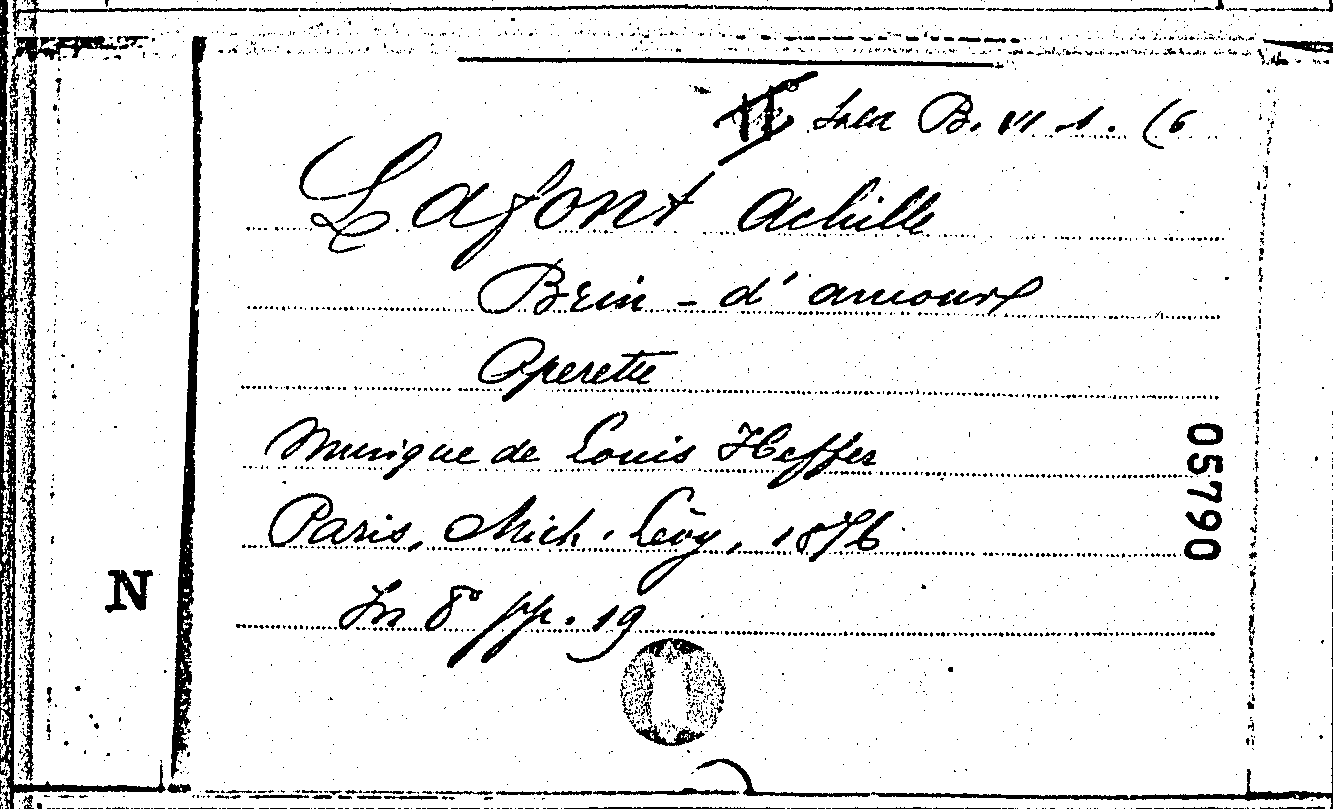 Sala B. VI 1. (6
Lafont Achille
Brin-d'amour
Operette
Musique de Louis Heffer
Paris, Mich. Lévy, 1876
In 8° pp. 19
05790
N